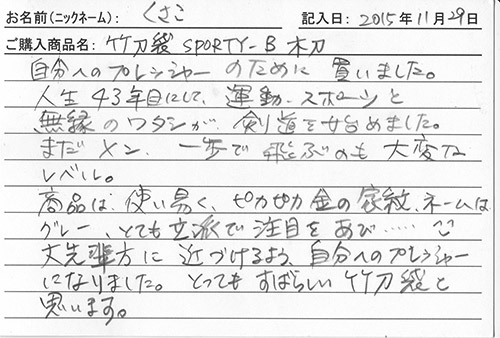 お名前(ニックネーム): くさこ 記入日: 2015年11月29日
ご購入商品名: 竹刀袋 SPORTY-B 木刀
自分へのプレッシャーのために 買いました。
人生43年目にして、運動・スポーツと
無縁のワタシが、剣道を始めました。
まだメン、一歩で飛ぶのも大変な
レベル。
商品は、使い易く、ピカピカ金の家紋、ネームは
グレー、とても立派で注目をあび……
大先輩方に近づけるよう、自分へのプレッシャー
になりました。とってもすばらしい竹刀袋と
思います。